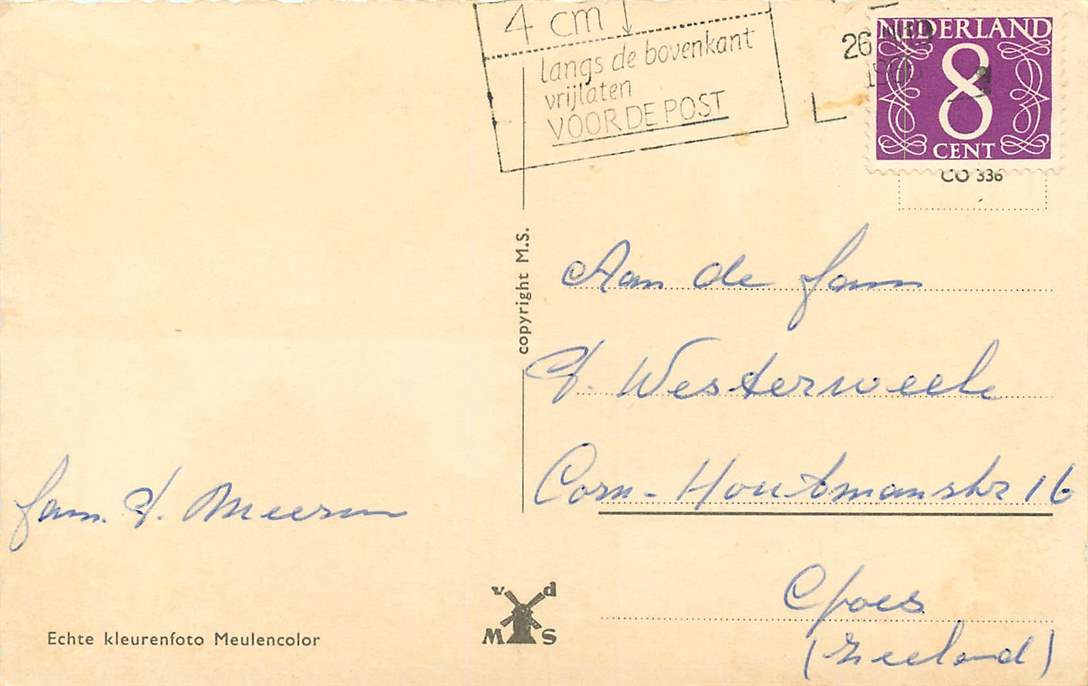 4 cm
langs de bovenkant
vrijlaten
VOOR DE POST
26
NEDERLAND
8
CENT
CO 336
copyright M.S.
Aan de fam
J. Westerweele
Corn. Houtmanstr 16
Goes
(Zeeland)
fam. J. Meersen
v d
M S
Echte kleurenfoto Meulencolor